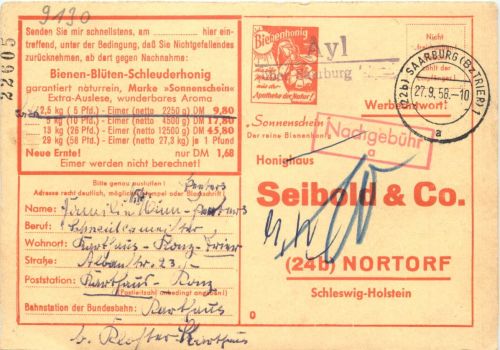 9130
22605
Senden Sie mir schnellstens, am hier ein-
treffend, unter der Bedingung, daß Sie Nichtgefallendes
zurücknehmen, ab dort gegen Nachnahme:
Bienen-Blüten-Schleuderhonig
garantiert naturrein, Marke »Sonnenschein«
Extra-Auslese, wunderbares Aroma
2,5 kg ( 5 Pfd.) - Eimer (netto 2250 g) DM 9,80
5 kg (10 Pfd.) - Eimer (netto 4500 g) DM 17,80
13 kg (26 Pfd.) - Eimer (netto 12500 g) DM 45,80
29 kg (58 Pfd.) - Eimer (netto 27,3 kg) je 1 Pfund
Neue Ernte! nur DM 1,68
Eimer werden nicht berechnet!
Bitte genau ausfüllen!
Adresse recht deutlich, möglichst Stempel oder Blockschrift
Name:
Beruf:
Wohnort: Karthaus - Konz - Trier
Straße: 23
Poststation: Karthaus - Konz
(Postleitzahl unbedingt angeben!)
Bahnstation der Bundesbahn: Karthaus
b. Karthaus
Bienenhonig
Apotheke der Natur!
Ayl
über Saarburg
Nicht
(22b) SAARBURG (BZ. TRIER)
27.9.58.-10
a
Werbeantwort!
Sonnenschein
Der reine Bienenhonig
Nachgebühr
a
Honighaus
Seibold & Co.
(24b) NORTORF
Schleswig-Holstein
0